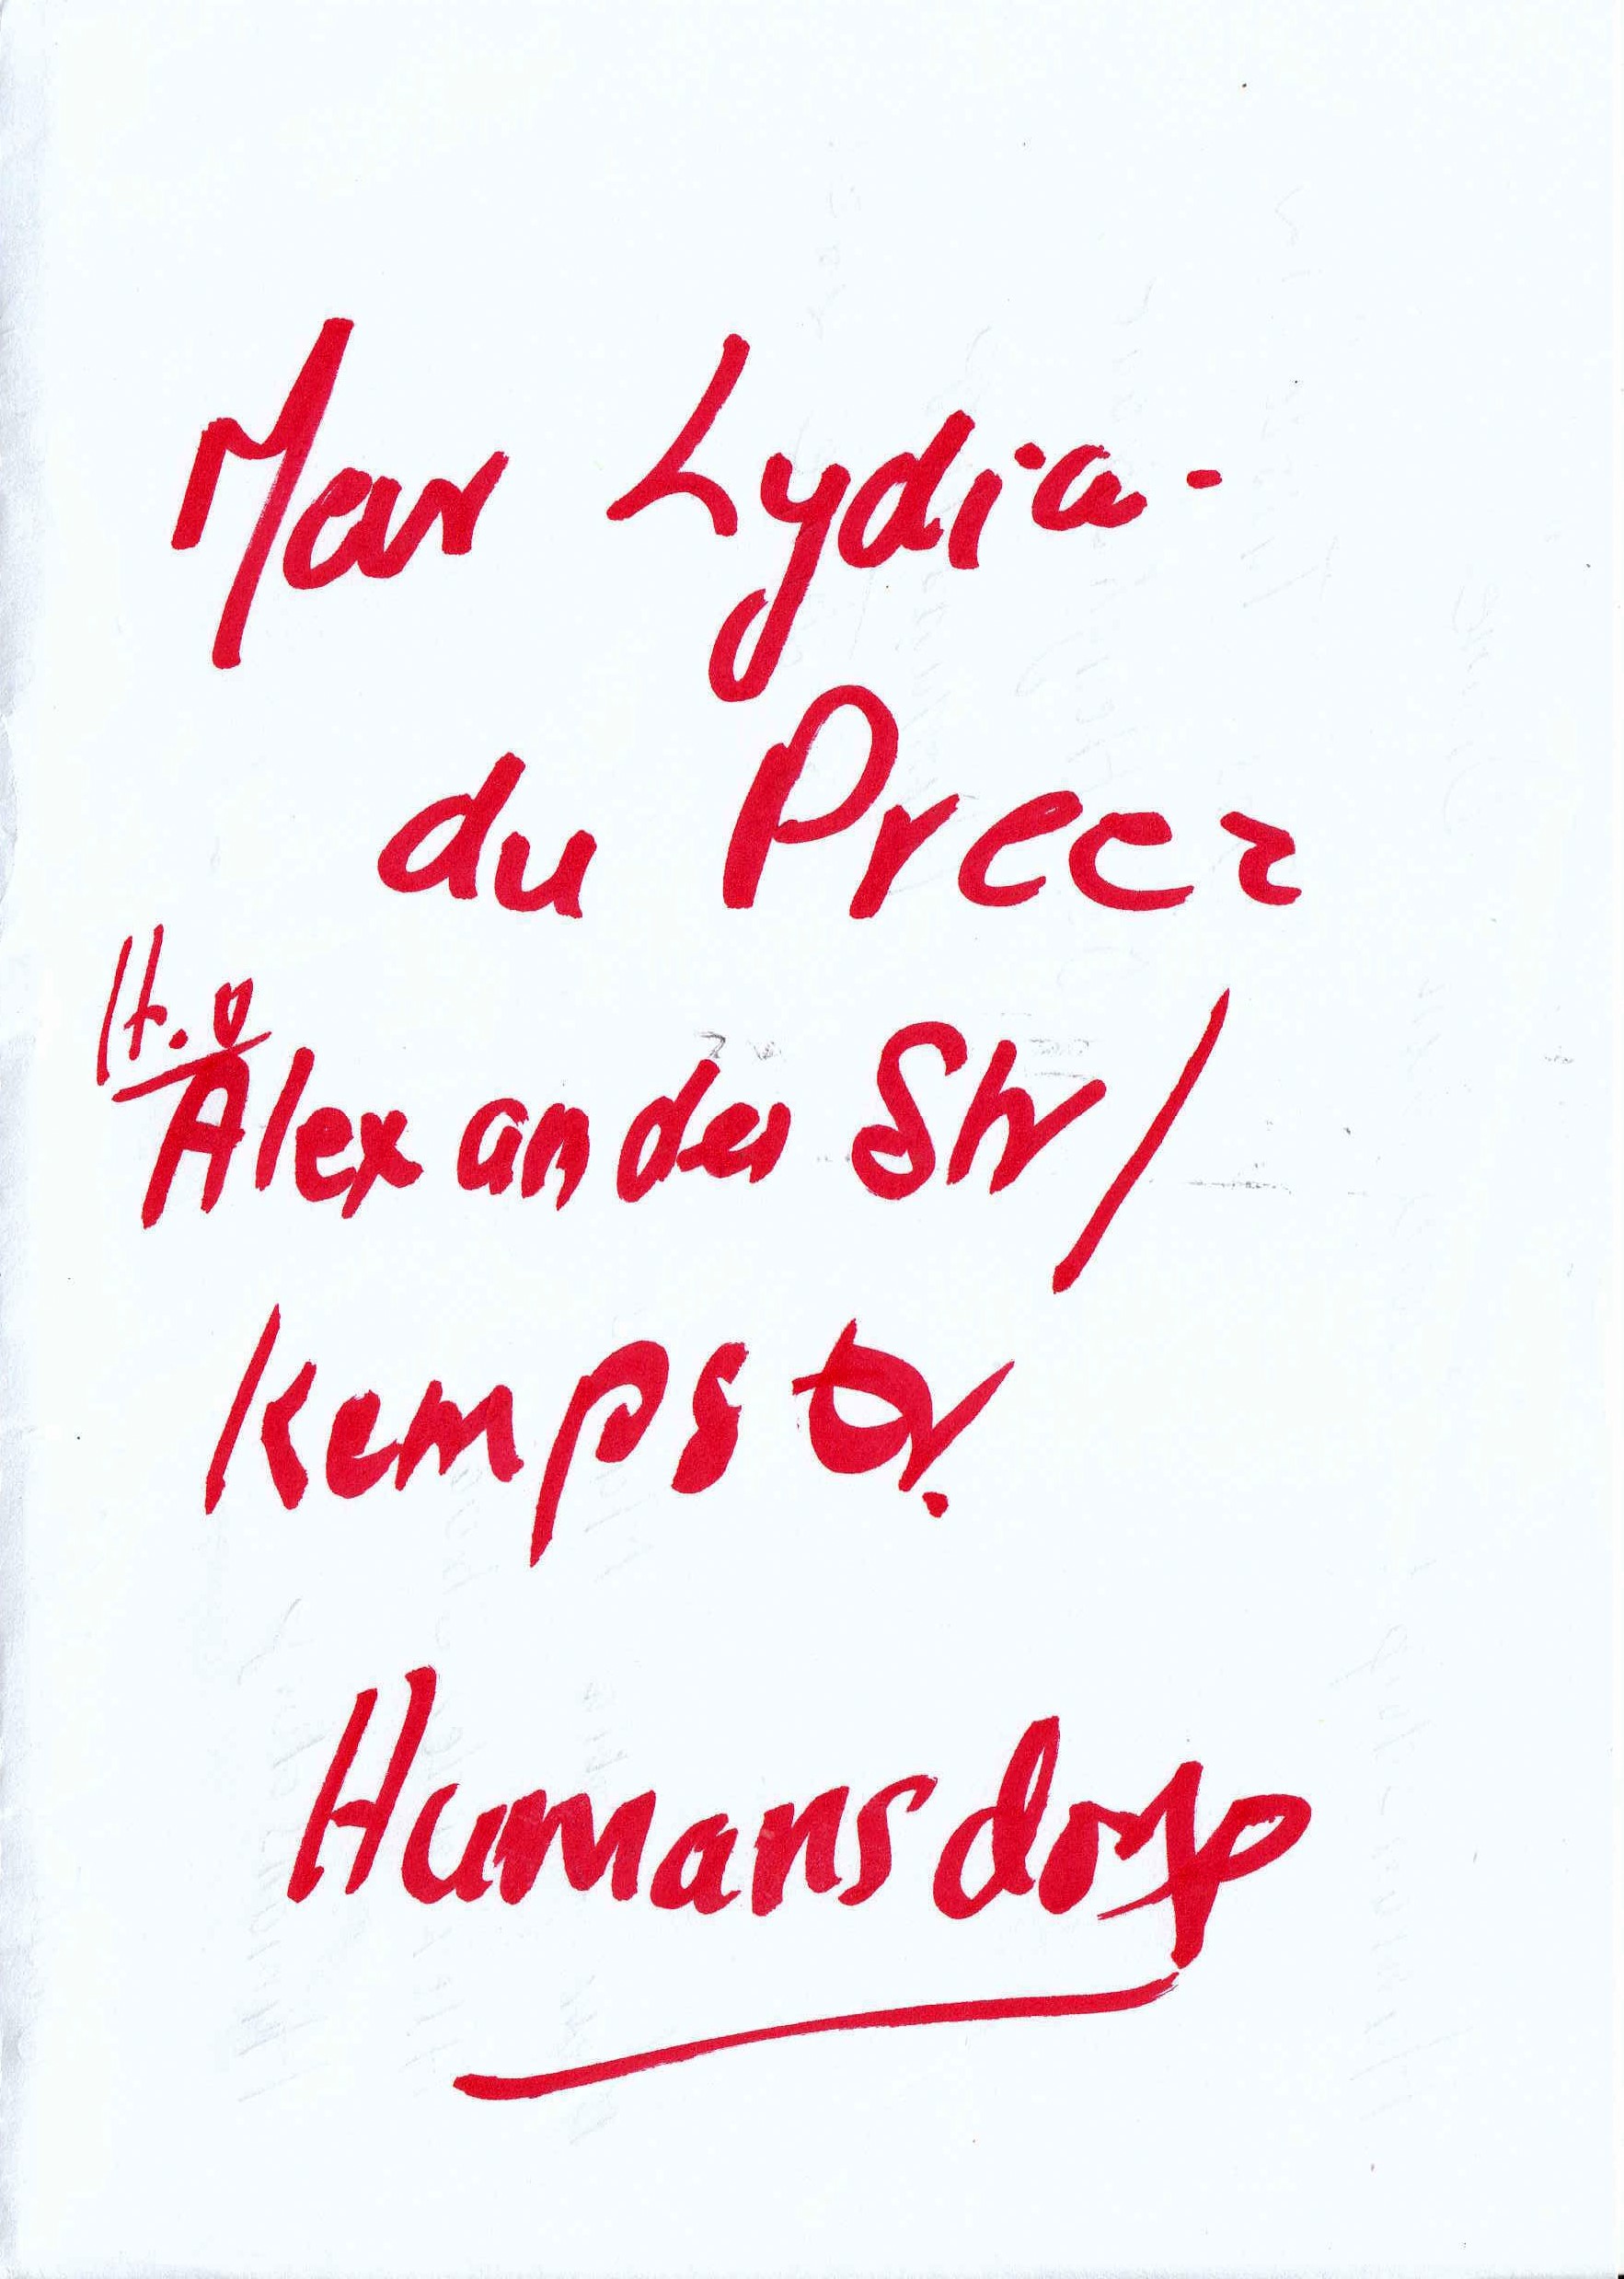 Mev Lydia -
du Preez
H.v
Alexander Str /
Kemps Dr.
Humansdorp